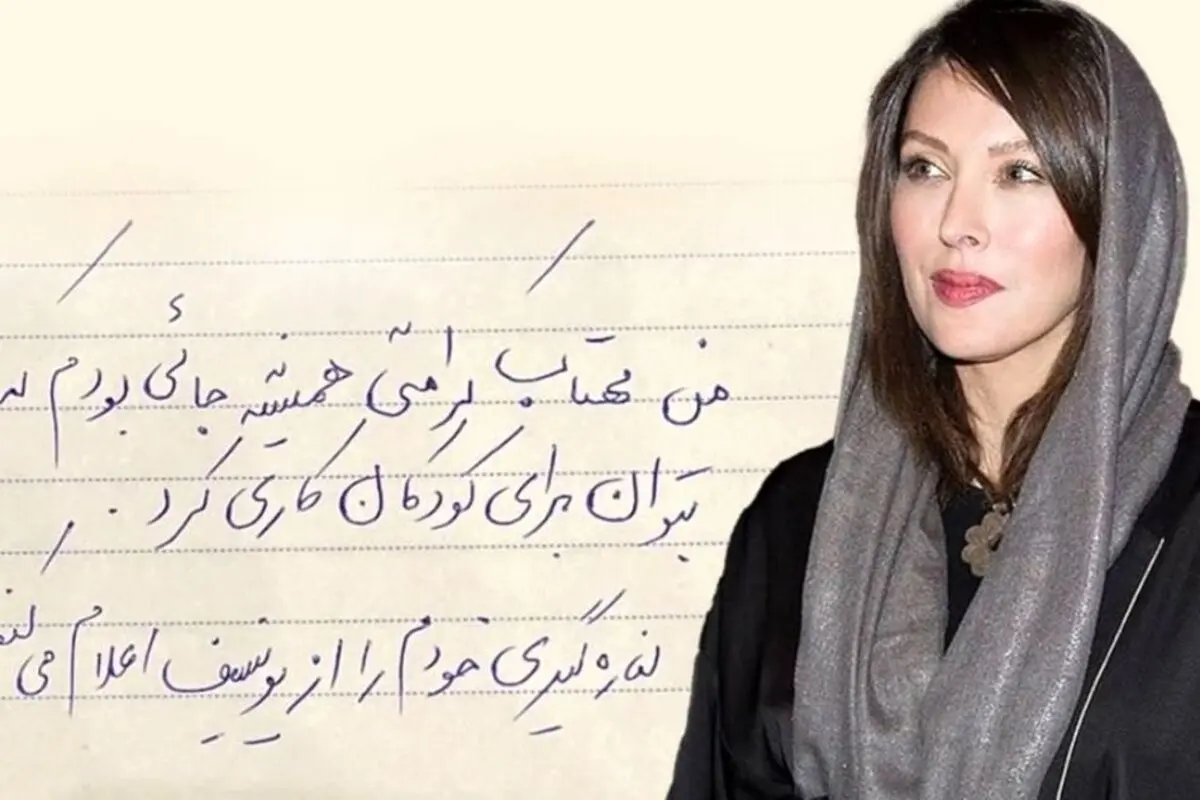 من مهتاب کرامتی همیشه جائی بودم که
بتوان برای کودکان کاری کرد.
کناره گیری خودم را از یونیسف اعلام می